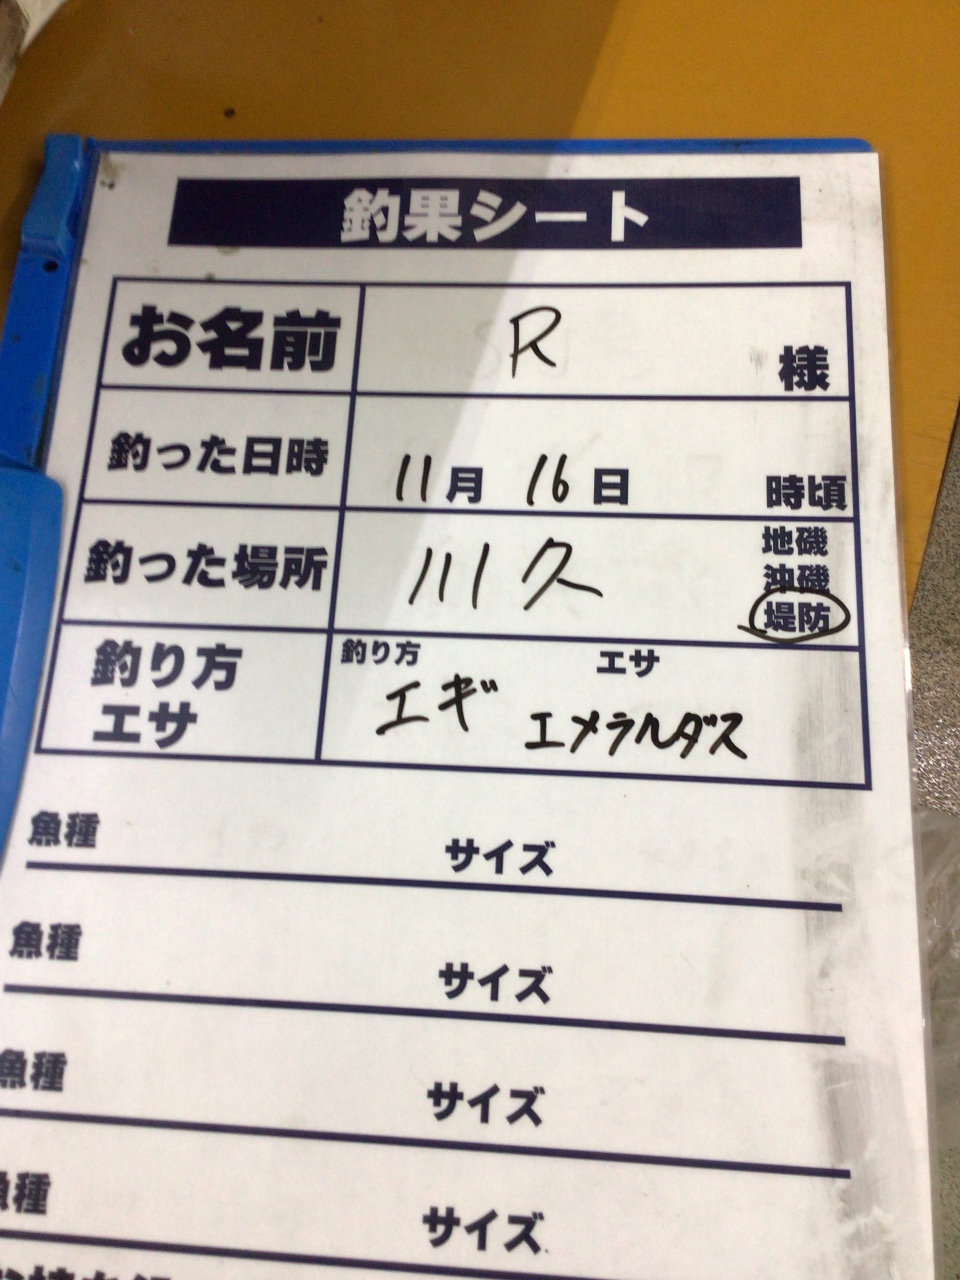 釣果シート
お名前 R 様
釣った日時 11月 16日 時頃
釣った場所 川久 地磯
沖磯
堤防
釣り方
エサ
釣り方 エサ
エギ エメラルダス
魚種 サイズ
魚種 サイズ
魚種 サイズ
魚種 サイズ